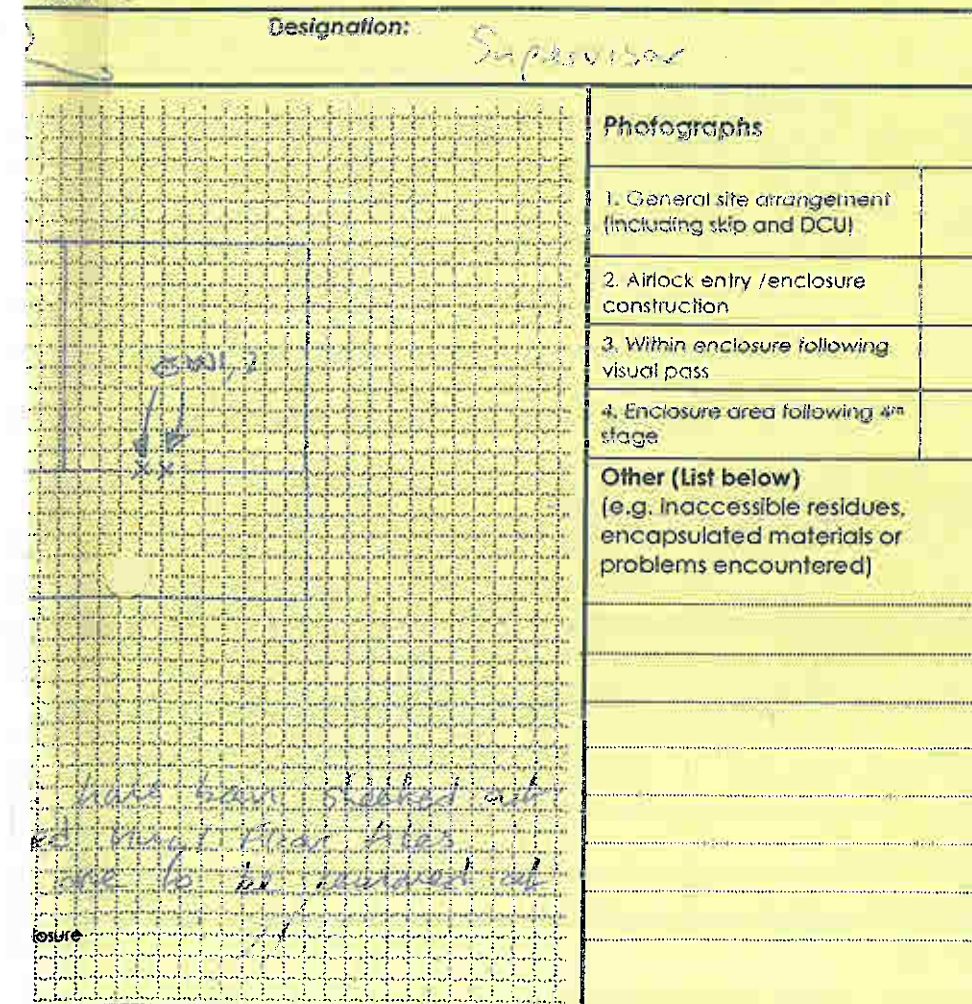 Designation:
Supervisor
Photographs
1. General site arrangement
(including skip and DCU)
2. Airlock entry /enclosure
construction
3. Within enclosure following
visual pass
4. Enclosure area following 4th
stage
Other (List below)
(e.g. inaccessible residues,
encapsulated materials or
problems encountered)
have been sheeted out
floor tiles
to be removed
osure